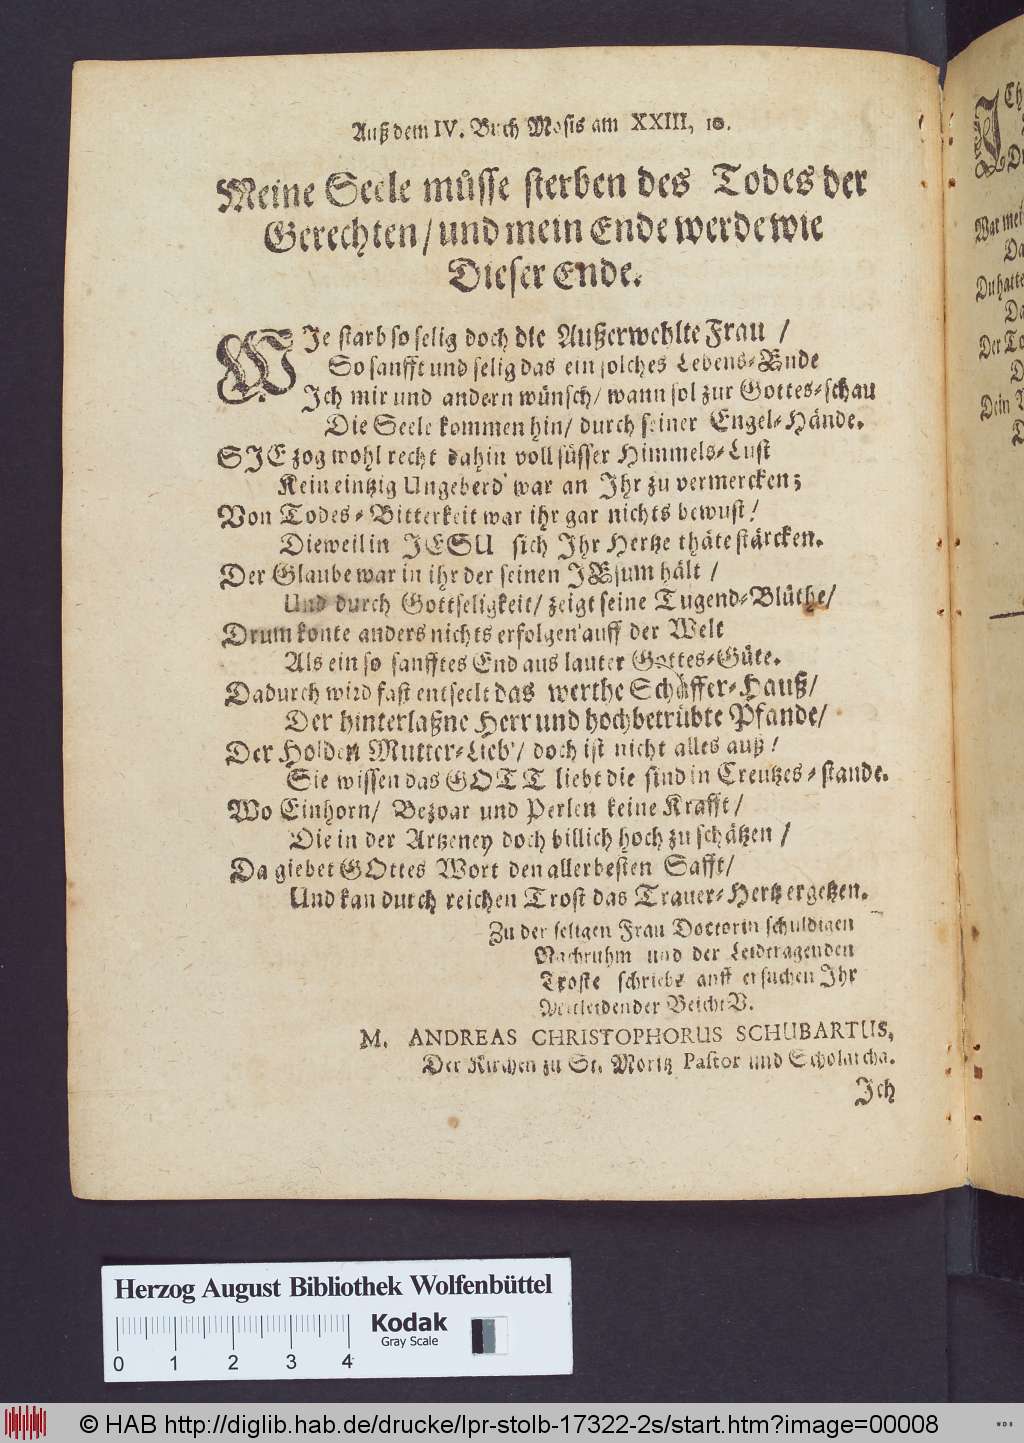 Auß dem IV. Buch Mosis am XXIII, 10.
Meine Seele müsse sterben des Todes der
Gerechten/ und mein Ende werde wie
Dieser Ende.
WIe starb so selig doch die Außerwehlte Frau /
So sanfft und selig das ein solches Lebens-Ende
Ich mir und andern wünsch/ wann sol zur Gottes-schau
Die Seele kommen hin/ durch seiner Engel-Hände.
SIE zog wohl recht dahin voll süsser Himmels-Lust
Kein eintzig Ungeberd' war an Ihr zu vermercken;
Von Todes-Bitterkeit war ihr gar nichts bewust/
Dieweil in JESU sich Ihr Hertze thäte stärcken.
Der Glaube war in ihr der seinen JEsum hält /
Und durch Gottseligkeit/ zeigt seine Tugend-Blüthe/
Drum konte anders nichts erfolgen auff der Welt
Als ein so sanfftes End aus lauter Gottes-Güte.
Dadurch wird fast entseelt das werthe Schäffer-Hauß/
Der hinterlaßne Herr und hochbetrübte Pfande/
Der Holden Mutter-Lieb'/ doch ist nicht alles auß /
Sie wissen das GOTT liebt die sind in Creutzes-stande.
Wo Einhorn/ Bezoar und Perlen keine Krafft/
Die in der Artzeney doch billich hoch zu schätzen /
Da giebet GOttes Wort den allerbesten Safft/
Und kan durch reichen Trost das Trauer-Hertz ergetzen.
Zu der seligen Frau Doctorin schuldigen
Nachruhm und der Leidtragenden
Troste schriebs auff ersuchen Ihr
Mitleidender Beicht V.
M. ANDREAS CHRISTOPHORUS SCHUBARTUS,
Der Kirchen zu St. Moritz Pastor und Scholarcha.
Ich
Herzog August Bibliothek Wolfenbüttel
Kodak
Gray Scale
0 1 2 3 4
© HAB http://diglib.hab.de/drucke/lpr-stolb-17322-2s/start.htm?image=00008